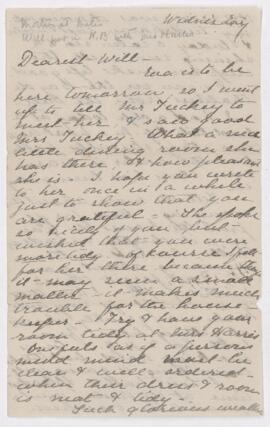 Wednesday
Dearest Will -
Eva is to be
here tomorrow so I went
up to tell Mr Tuckey to
meet her & saw good
Mrs Tuckey. What a nice
little dining room she
has there & how pleasant
she is. I hope you write
to her once in a while
just to show that you
are grateful - She spoke
so nicely of you but
wished that you were
more tidy - of course
for her there because
it may seem a small
matter - it makes much
trouble for the house
keeper - Try & have your
room tidy at Mrs Harris
as if a persons
mind must be
clean & well ordered
when their dress & room
is neat & tidy -
Such glorious weather